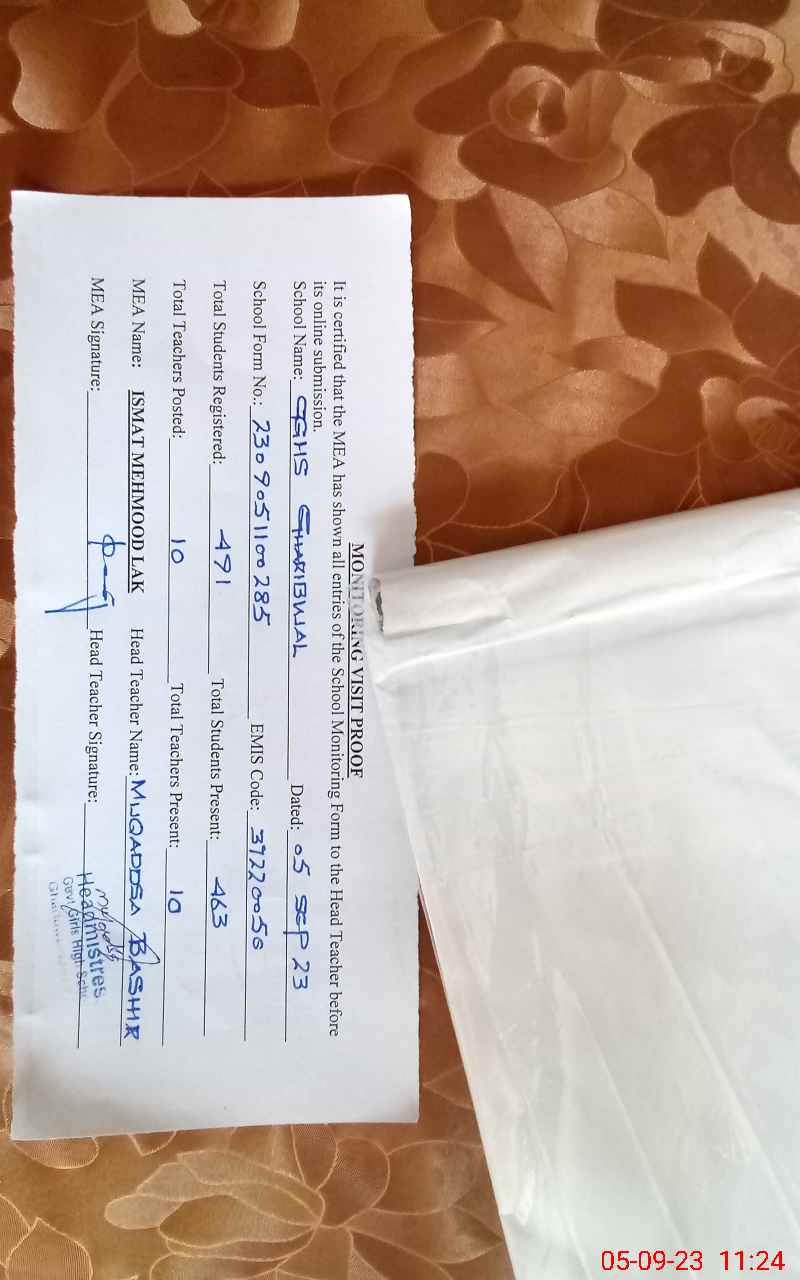 MONITORING VISIT PROOF
It is certified that the MEA has shown all entries of the School Monitoring Form to the Head Teacher before
its online submission.
School Name: GGHS GHARIBWAL Dated: 05 SEP 23
School Form No.: 2309051100285 EMIS Code: 39220050
Total Students Registered: 491 Total Students Present: 463
Total Teachers Posted: 10 Total Teachers Present: 10
MEA Name: ISMAT MEHMOOD LAK Head Teacher Name: MUQADDSA BASHIR
MEA Signature: Head Teacher Signature:
Headmistres
Govt Girls High
05-09-23 11:24